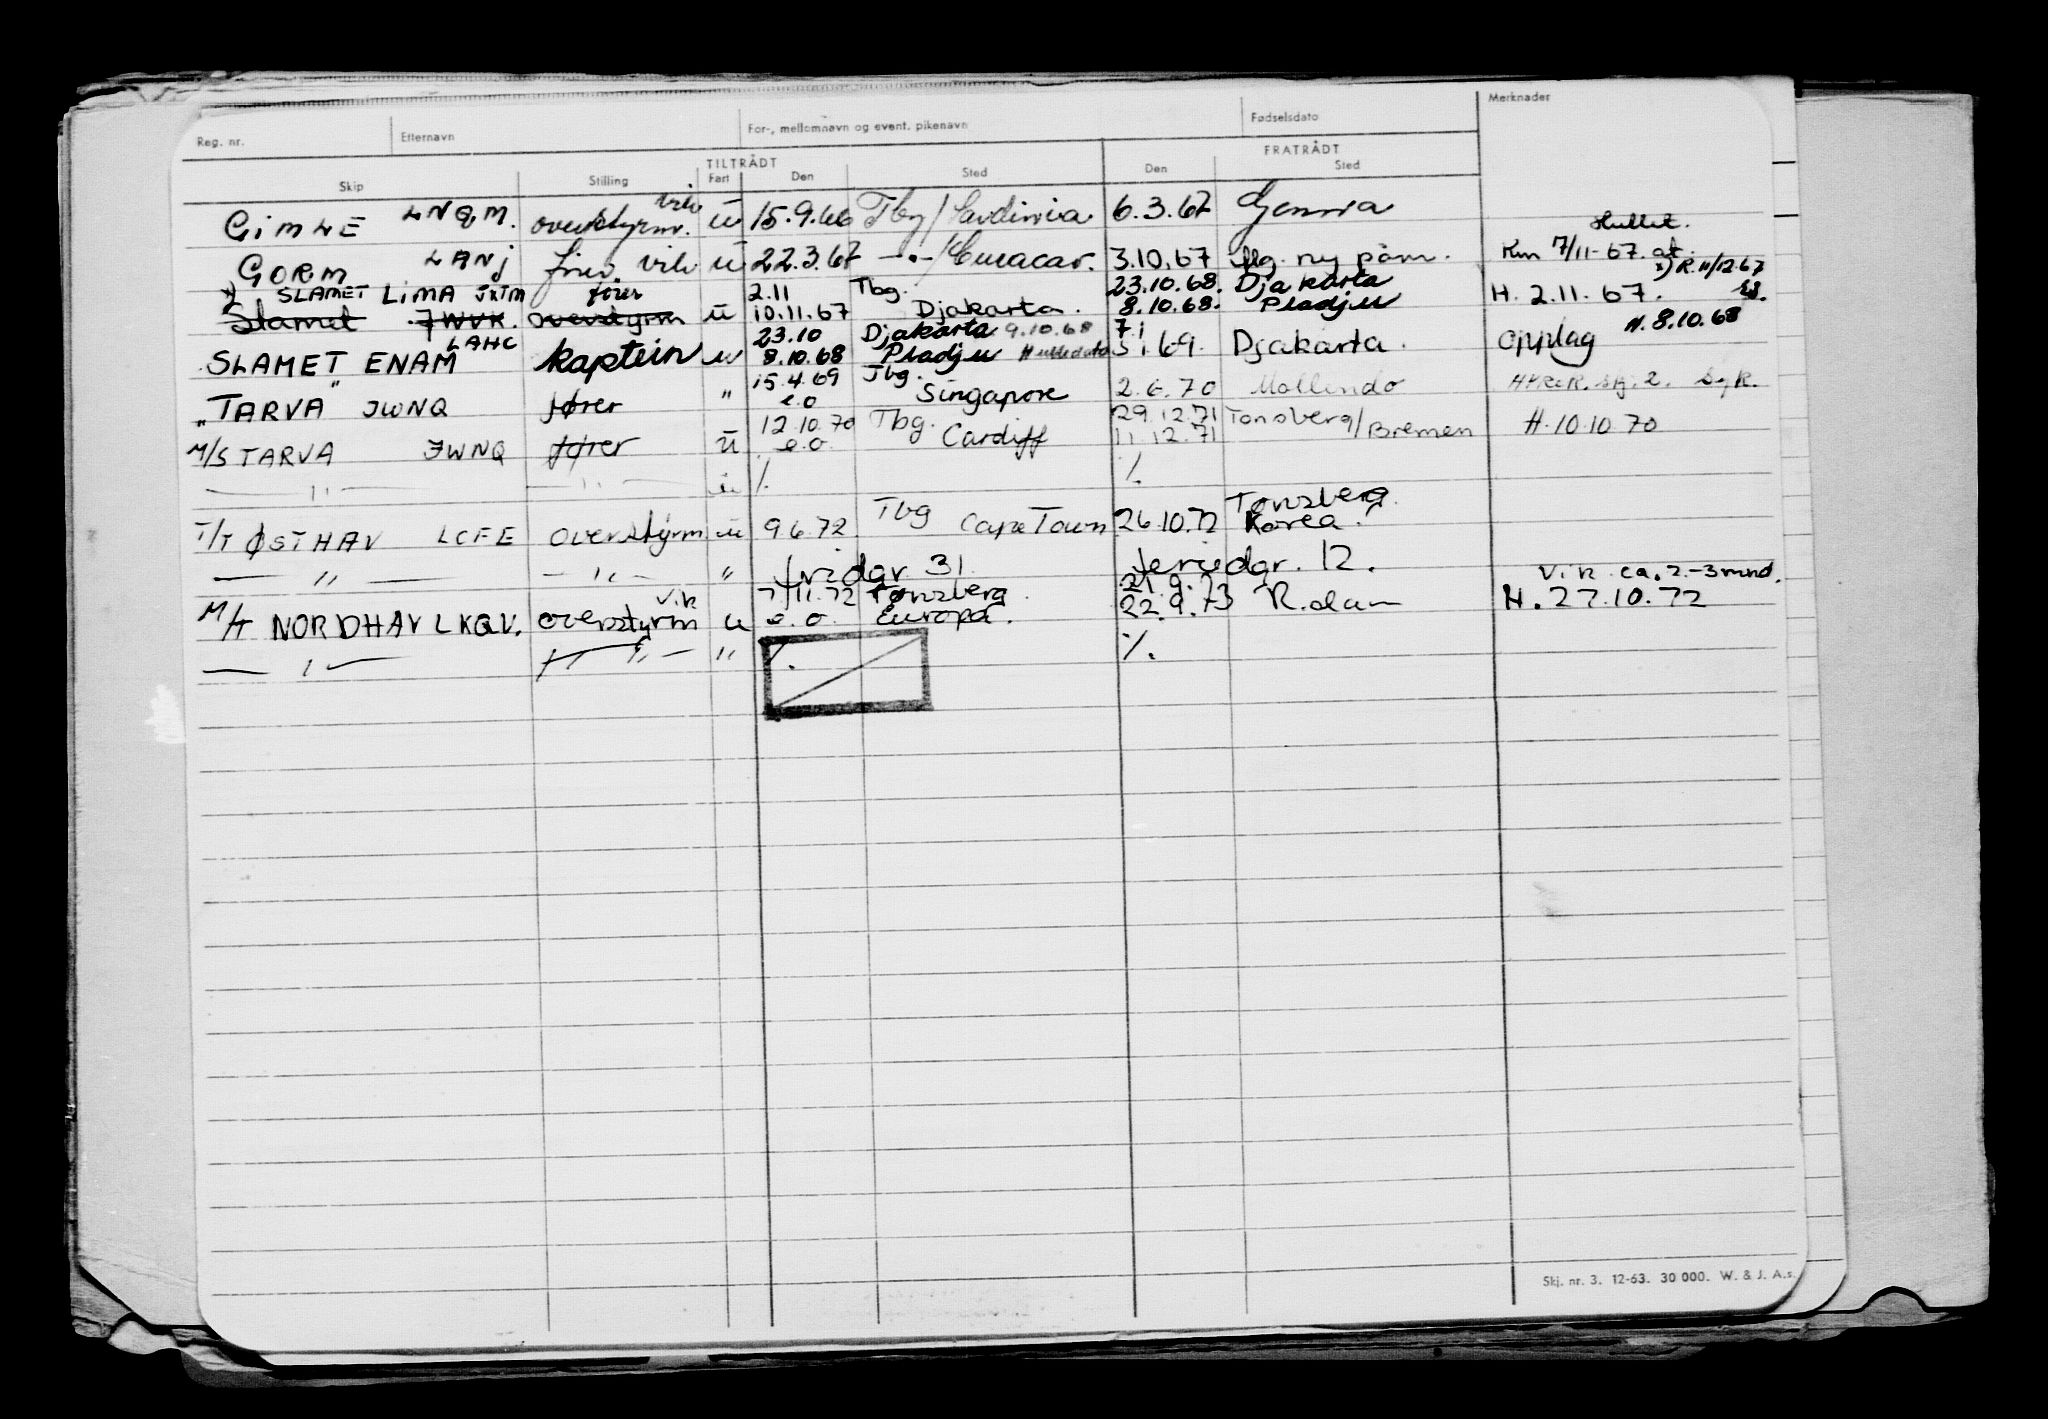 Reg. nr. Efternavn For-, mellomnavn og event. pikenavn Fødselsdato Merknader
TILTRÅDT FRATRÅDT
Skip Stilling Fart Den Sted Den Sted
GIMLE LNQM. overstyrm. vik ū 15.9.66 Tbg/Sardinia 6.3.67 Genova
Hullet.
GORM LANJ fører vik ū 22.3.67 —"—/Curacao. 3.10.67 flg. ny påm. Kun 7/11-67. at.
x) SLAMET LIMA JXTM fører 2.11 Tbg. 23.10.68. Djakarta x) R. 11/12-67
Slamet JWVK. overstyrm ū 10.11.67 Djakarta. 8.10.68. Pladju H. 2.11.67.
LAHC 23.10 Djakarta 9.10.68 7.1 H. 8.10.68
SLAMET ENAM kaptein u 8.10.68 Pladju Hulledato 5.1.69. Djakarta. Opplag
15.4.69 Tbg.
" TARVA JWNQ fører " e.o Singapore 2.6.70 Mollendo
12.10.70 Tbg. 29.12.71 Tønsberg/Bremen
M/S TARVA JWNQ fører ū e.o. Cardiff 11.12.71 H.10.10.70
— " — — " — ū /. /.
Tbg Tønsberg.
T/T ØSTHAV LCFE overstyrm ū 9.6.72. Cape Town 26.10.72 Korea.
— " — — " — " fridgr 31 feriedgr. 12.
vik 7/11.72 Tønsberg. 21.9. Vik ca. 2-3 mnd.
M/T NORDHAV LKQV. overstyrm u e.o. Europa. 22.9.73 R.dam H. 27.10.72
— " — " " — " /. /.
Skj. nr. 3. 12-63. 30 000. W. & J. A.s.